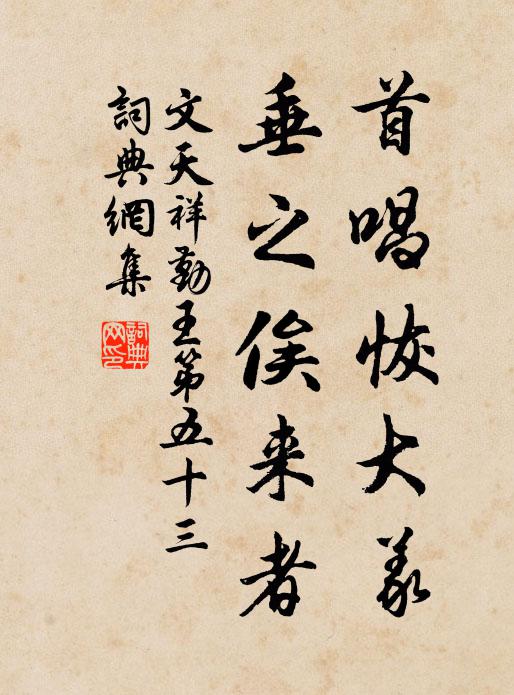 首唱恢大义
垂之俟来者
文天祥勤王第五十三
詞典網集
詞典
网印